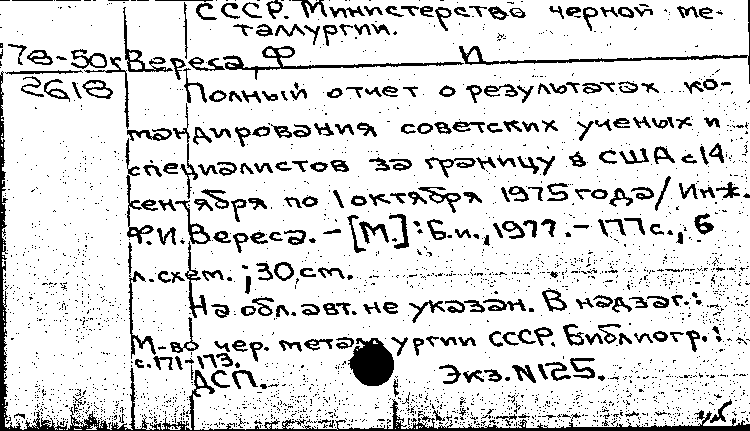 СССР. Министерство черной ме-
таллургии.
78-50к Вереса, Ф И
2618 Полный отчет о результатах ко-
мандирования советских ученых и
специалистов за границу в США с 14
сентября по 1 октября 1975 года/ Инж.
Ф.И. Вереса. - [М.]: Б.и., 1977. - 177 с., 6
л. схем. ; 30 см.
На обл. авт. не указан. В надзаг.:
М-во чер. металлургии СССР. Библиогр.:
с. 171-173.
ДСП. Экз. N 125.